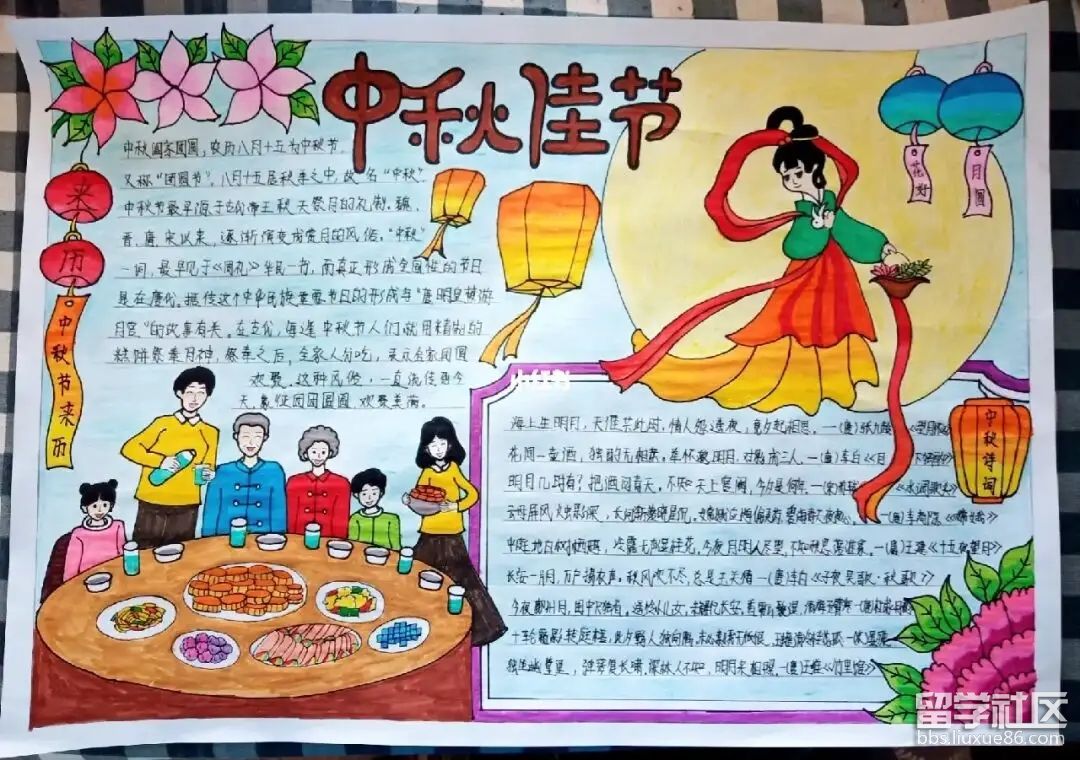 中秋佳节
中秋阖家团圆，农历八月十五为中秋节
又称“团圆节”，八月十五居秋季之中，故名“中秋”
中秋节最早源于古代帝王秋天祭月的礼制。魏、
晋、唐、宋以来，逐渐演变成赏月的风俗。“中秋”
一词，最早见于《周礼》一书，而真正形成全国性的节日
是在唐代。据传这个中华民族重要节日的形成与“唐明皇梦游
月宫”的故事有关。在古代，每逢中秋节人们就用精制的
糕饼祭奉月神，祭奉之后，全家人分吃，表示合家团圆
欢聚。这种风俗，一直流传到今
天，象征团团圆圆，欢聚美满。
来
历
中秋节来历
花好
月圆
中秋诗词
海上生明月，天涯共此时。情人怨遥夜，竟夕起相思。—(唐)张九龄《望月
花间一壶酒，独酌无相亲。举杯邀明月，对影成三人。—(唐)李白《月
明月几时有？把酒问青天。不知天上宫阙，今夕是何年。《水调歌头》
云母屏风烛影深，长河渐落晓星沉。(唐)李商隐《嫦娥》
中庭地白树栖鸦，冷露无声湿桂花。今夜月明人尽望，不知秋思落谁家。—(唐)王建《十五夜望月》
长安一片月，万户捣衣声。秋风吹不尽，总是玉关情—(唐)李白《子夜吴歌·秋歌》
今夜鄜州月，闺中只独看。遥怜小儿女，未解忆长安。
独坐幽篁里，弹琴复长啸。深林人不知，明月来相照。—(唐)王维《竹里馆》
小红书
留学社区
bbs.liuxue86.com